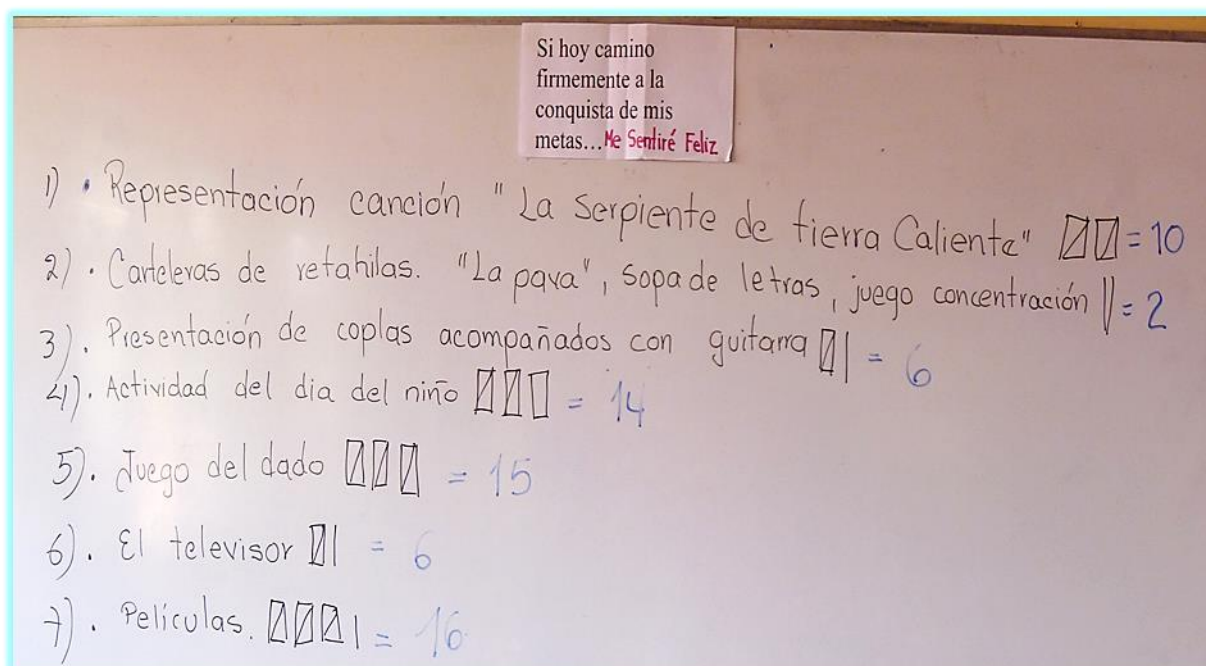 Si hoy camino
firmemente a la
conquista de mis
metas...Me Sentiré Feliz
1) • Representación canción "La Serpiente de tierra Caliente" = 10
2) • Carteleras de retahilas. "La pava", sopa de letras, juego concentración || = 2
3). Presentación de coplas acompañados con guitarra | = 6
4). Actividad del dia del niño = 14
5). Juego del dado = 15
6). El televisor | = 6
7). Películas. | = 16